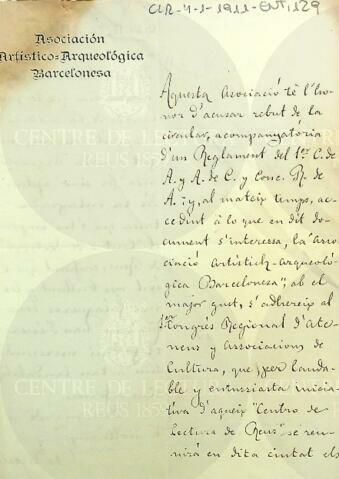 CLR-4-1-1911-ENT, 129
Asociación
Artístico-Arqueológica
Barcelonesa
Aquesta Associació té l'ho-
nor d'acusar rebut de la
circular, acompanyatoria
d'un Reglament del 1er C. de
A. y A. de C. y Conc. R. de
A.; y, al mateix temps, ac-
cedint á lo que en dit do-
cument s'interessa, la "Asso-
ciació Artístich-Arqueoló-
gica Barcelonesa", ab el
major gust, s'adhereix al
1er Congrés Regional d'Ate-
neus y Associacions de
Cultura, que, per lauda-
ble y entussiasta inicia-
tiva d'aqueix "Centro de
Lectura de Reus" se reu-
nirá en dita ciutat els
CENTRE DE LECTURA
REUS 1859
CENTRE DE LECTURA
REUS 1859